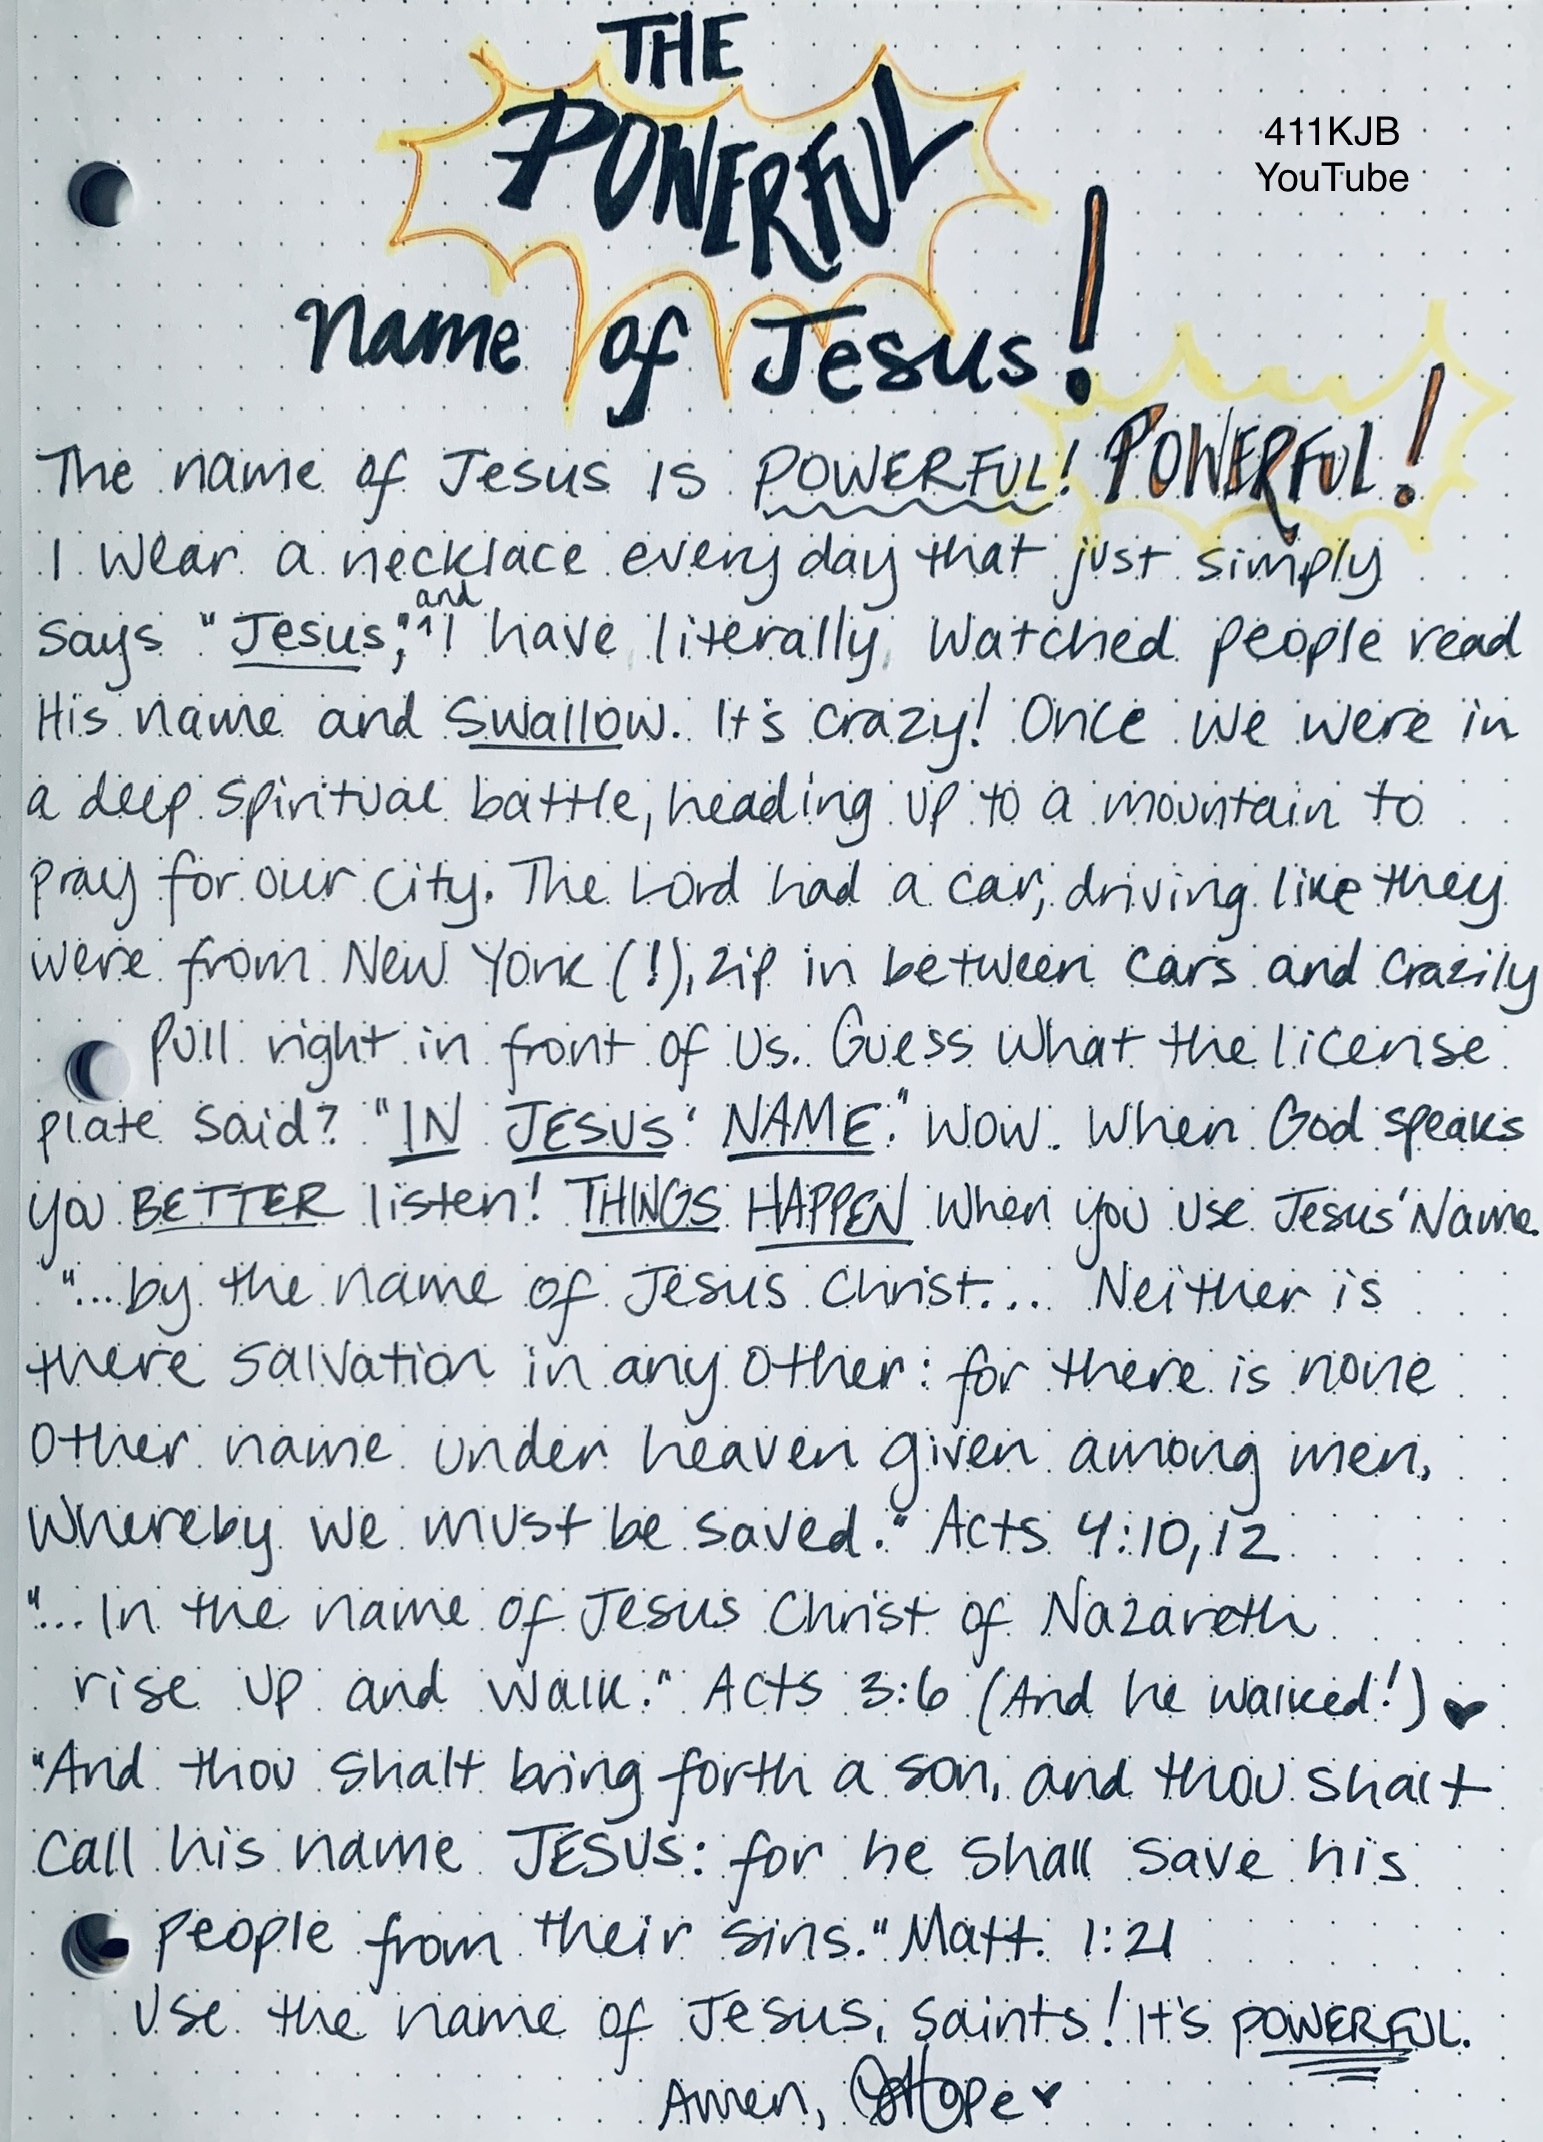 THE
POWERFUL
411KJB
YouTube
Name of Jesus!
The name of Jesus is POWERFUL! POWERFUL!
I wear a necklace every day that just simply
and
says "Jesus," ^ I have literally watched people read
His name and swallow. It's crazy! Once we were in
a deep spiritual battle, heading up to a mountain to
pray for our city. The Lord had a car, driving like they
were from New York (!), zip in between cars and crazily
pull right in front of us. Guess what the license
plate said? "IN JESUS' NAME." Wow. When God speaks
you BETTER listen! THINGS HAPPEN when you use Jesus' Name.
"...by the name of Jesus Christ... Neither is
there salvation in any other: for there is none
other name under heaven given among men,
whereby we must be saved." Acts 4:10,12
"...In the name of Jesus Christ of Nazareth
rise up and walk." Acts 3:6 (And he walked!) ♥
"And thou shalt bring forth a son, and thou shalt
call his name JESUS: for he shall save his
people from their sins." Matt. 1:21
Use the name of Jesus, saints! It's POWERFUL.
Amen, Hope ♥